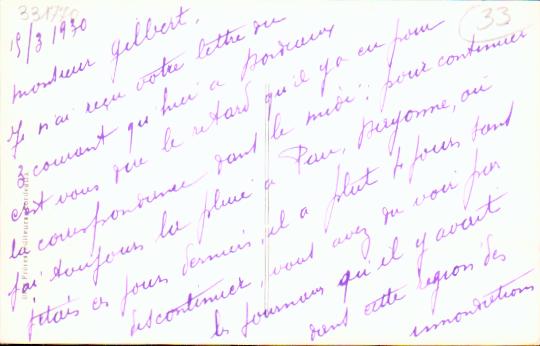 331770
33
15/3 1930
Monsieur Gilbert,
Je n'ai reçu votre lettre du
courant qu'hier a Bordeaux
c'est vous dire le retard qu'il y a eu pour
la correspondance dans le midi: pour continuer
j'ai toujours la pluie a Pau, Bayonne, où
j'étais ces jours derniers, il a plut 4 jours sans
discontinuer, vous avez du voir par
les journeaux qu'il y avait
dans cette region des
innondations